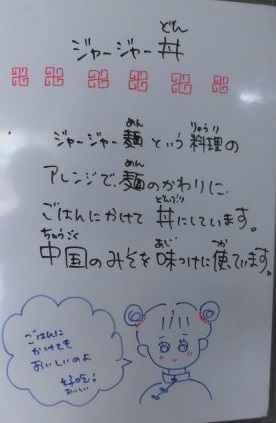 どん
ジャージャー丼
めん りょうり
ジャージャー麺という料理の
めん
アレンジで、麺のかわりに、
どんぶり
ごはんにかけて丼にしています。
ちゅうごく あじ つか
中国のみそを味つけに使ています。
ごはんに
かけても
おいしいのよ
好吃!
おいしい